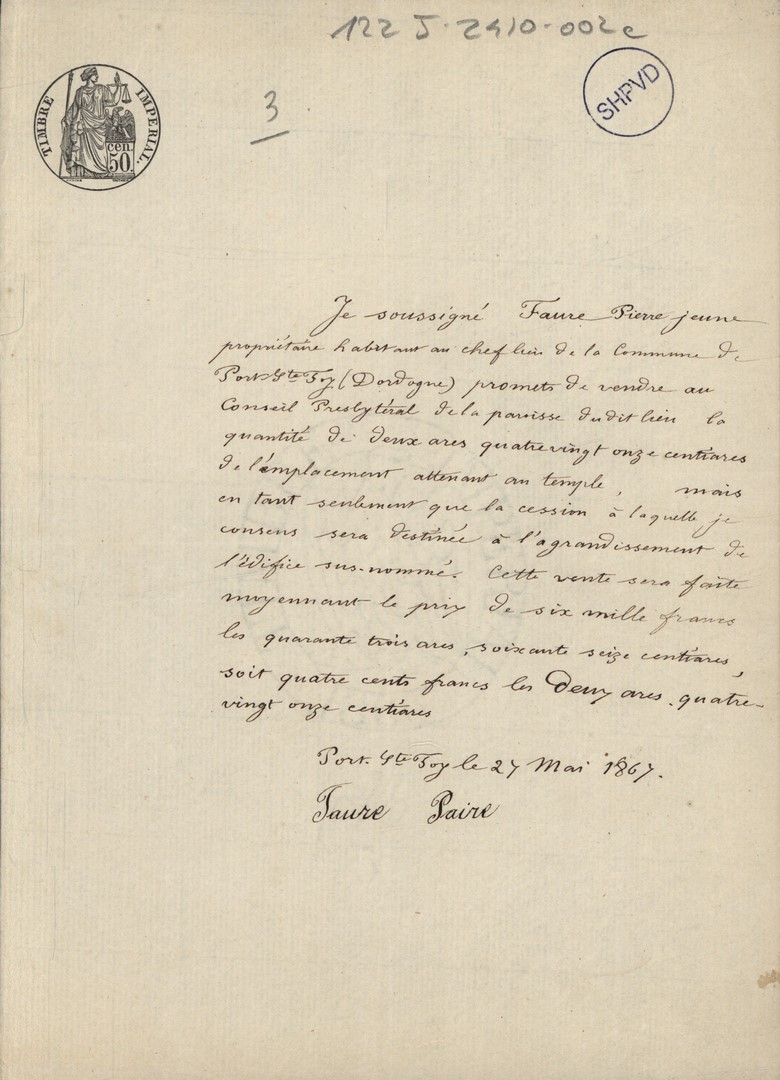 122 J. 2410-002c
TIMBRE IMPERIAL.
cen.
50.
3
SHPVD
Je soussigné Faure Pierre jeune
propriétaire habitant au chef lieu de la Commune de
Port-Ste Foy (Dordogne) promets de vendre au
Conseil Presbytéral de la paroisse dudit lieu la
quantité de deux ares quatre vingt onze centiares
de l'émplacement attenant au temple, mais
en tant seulement que la cession à laquelle je
consens sera destinée à l'agrandissement de
l'édifice sus-nommé. Cette vente sera faite
moyennant le prix de six mille francs
les quarante trois ares, soixante seize centiares,
soit quatre cents francs les Deux ares quatre-
vingt onze centiares
Port. Ste Foy le 27 Mai 1867.
Faure Paire